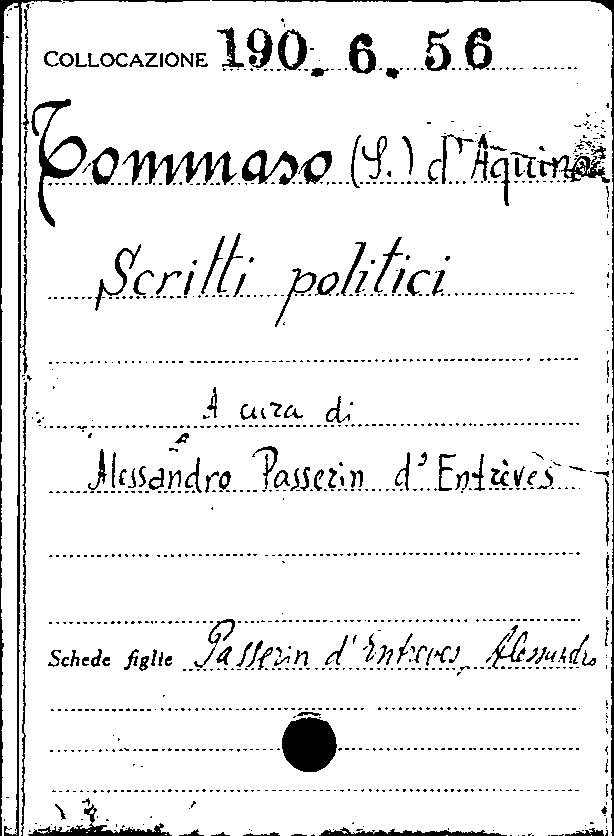 COLLOCAZIONE 190. 6. 56
Tommaso (S.) d'Aquino
Scritti politici
A cura di
Alessandro Passerin d'Entrèves
Schede figlie Passerin d'Entreves, Alessandro